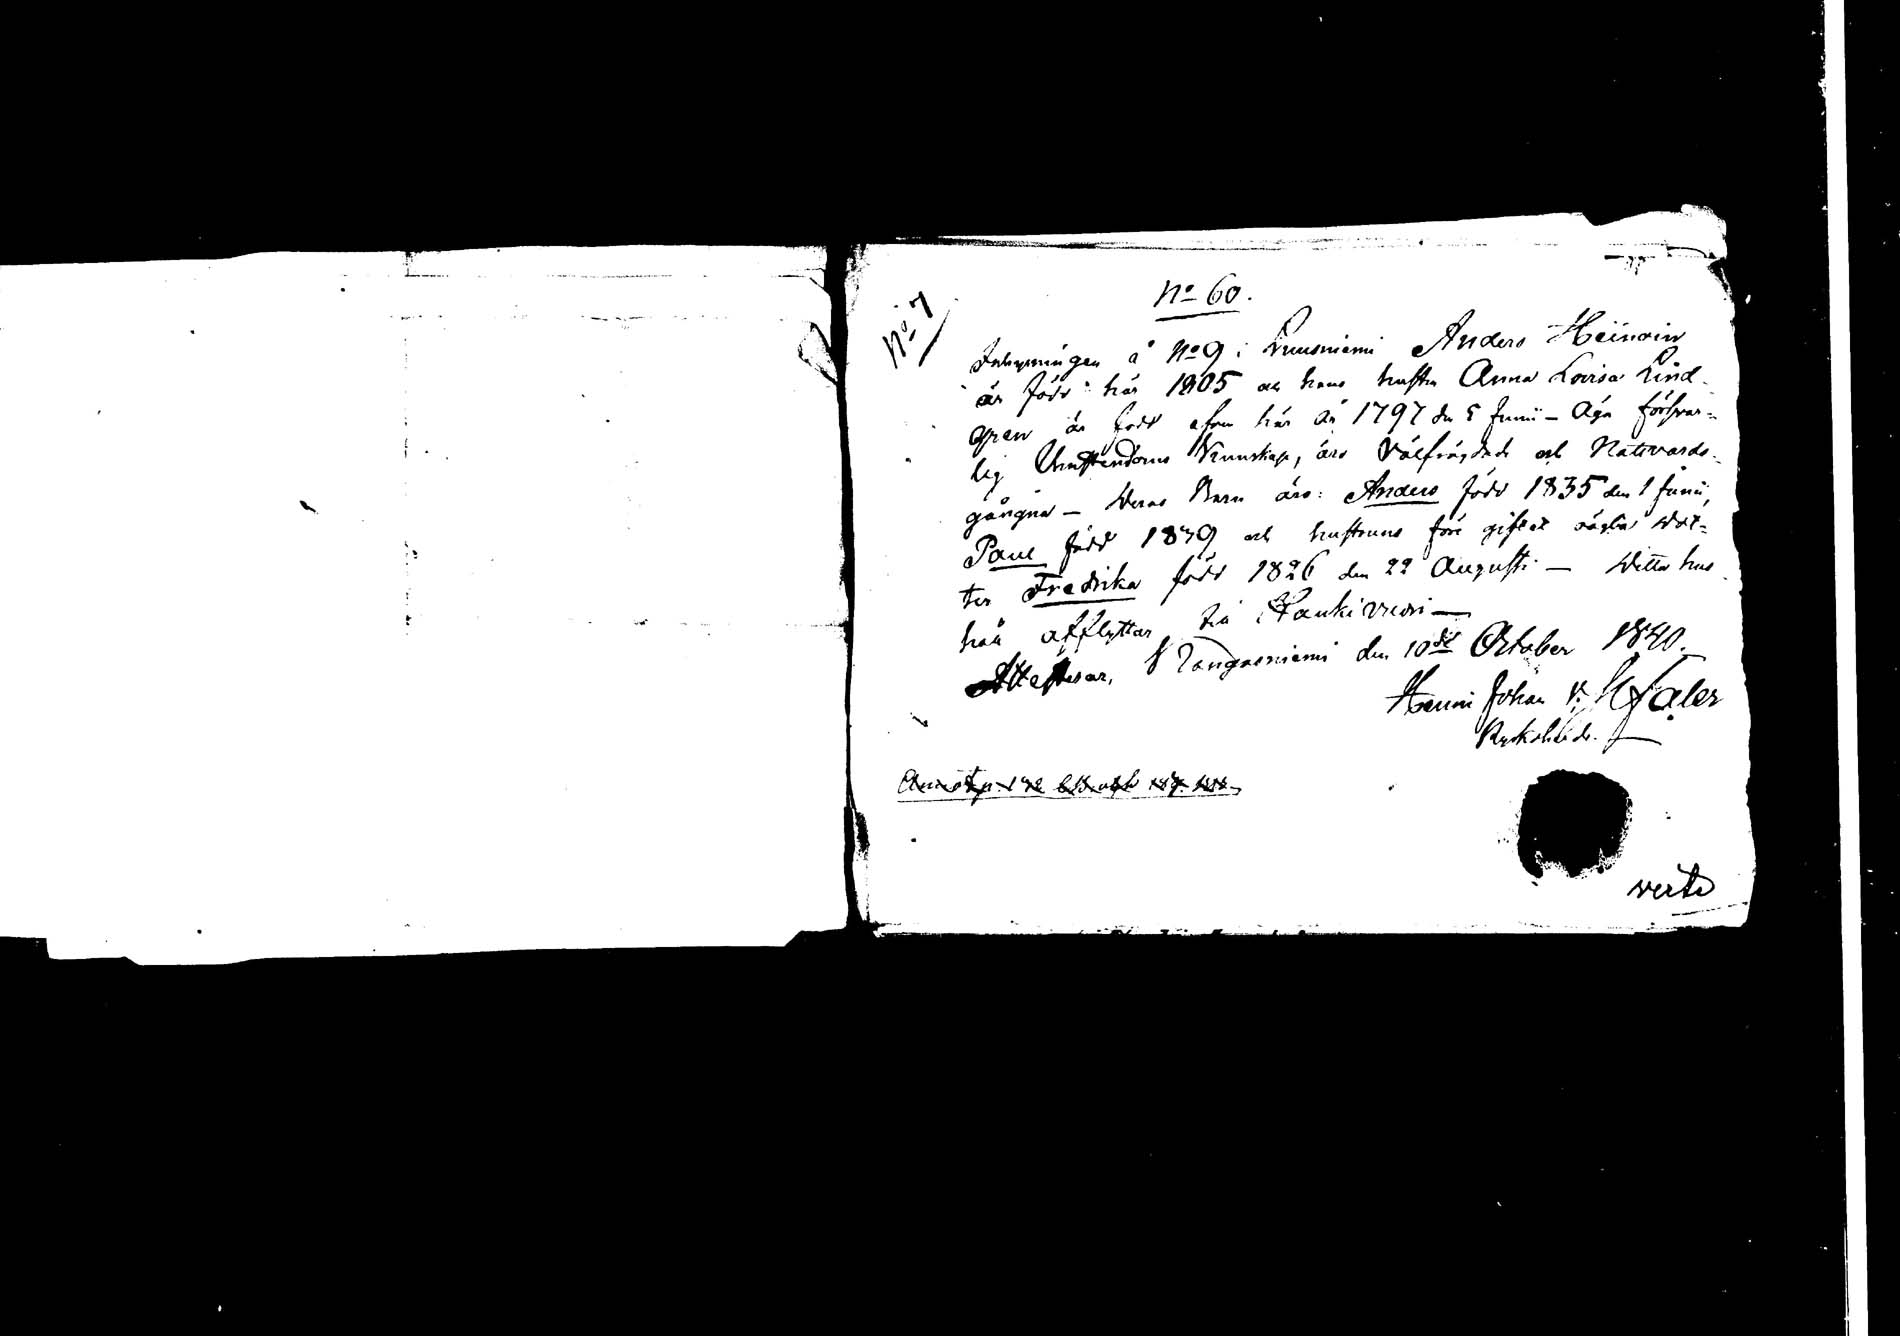 No 7
No 60.
Inhysingen å No 9 i Kuusniemi Anders Heinoin
är född här 1805 och hans hustru Anna Lovisa Lind-
gren är född äfven här år 1797 den 5 Junii – Äga försvar-
lig Christendoms Kunnskap, äro välfrägdade och Nattvards-
gångna – Deras Barn äro: Anders född 1835 den 1 Junii,
Paul född 1839 och hustruns före giftet äGta Dot-
ter Fredrika född 1826 den 22 Augusti – Detta hus
håll afflyttar till Haukivuori –
Attesterar, Kangasniemi den 10de October 1840.
Henric Johan
verte